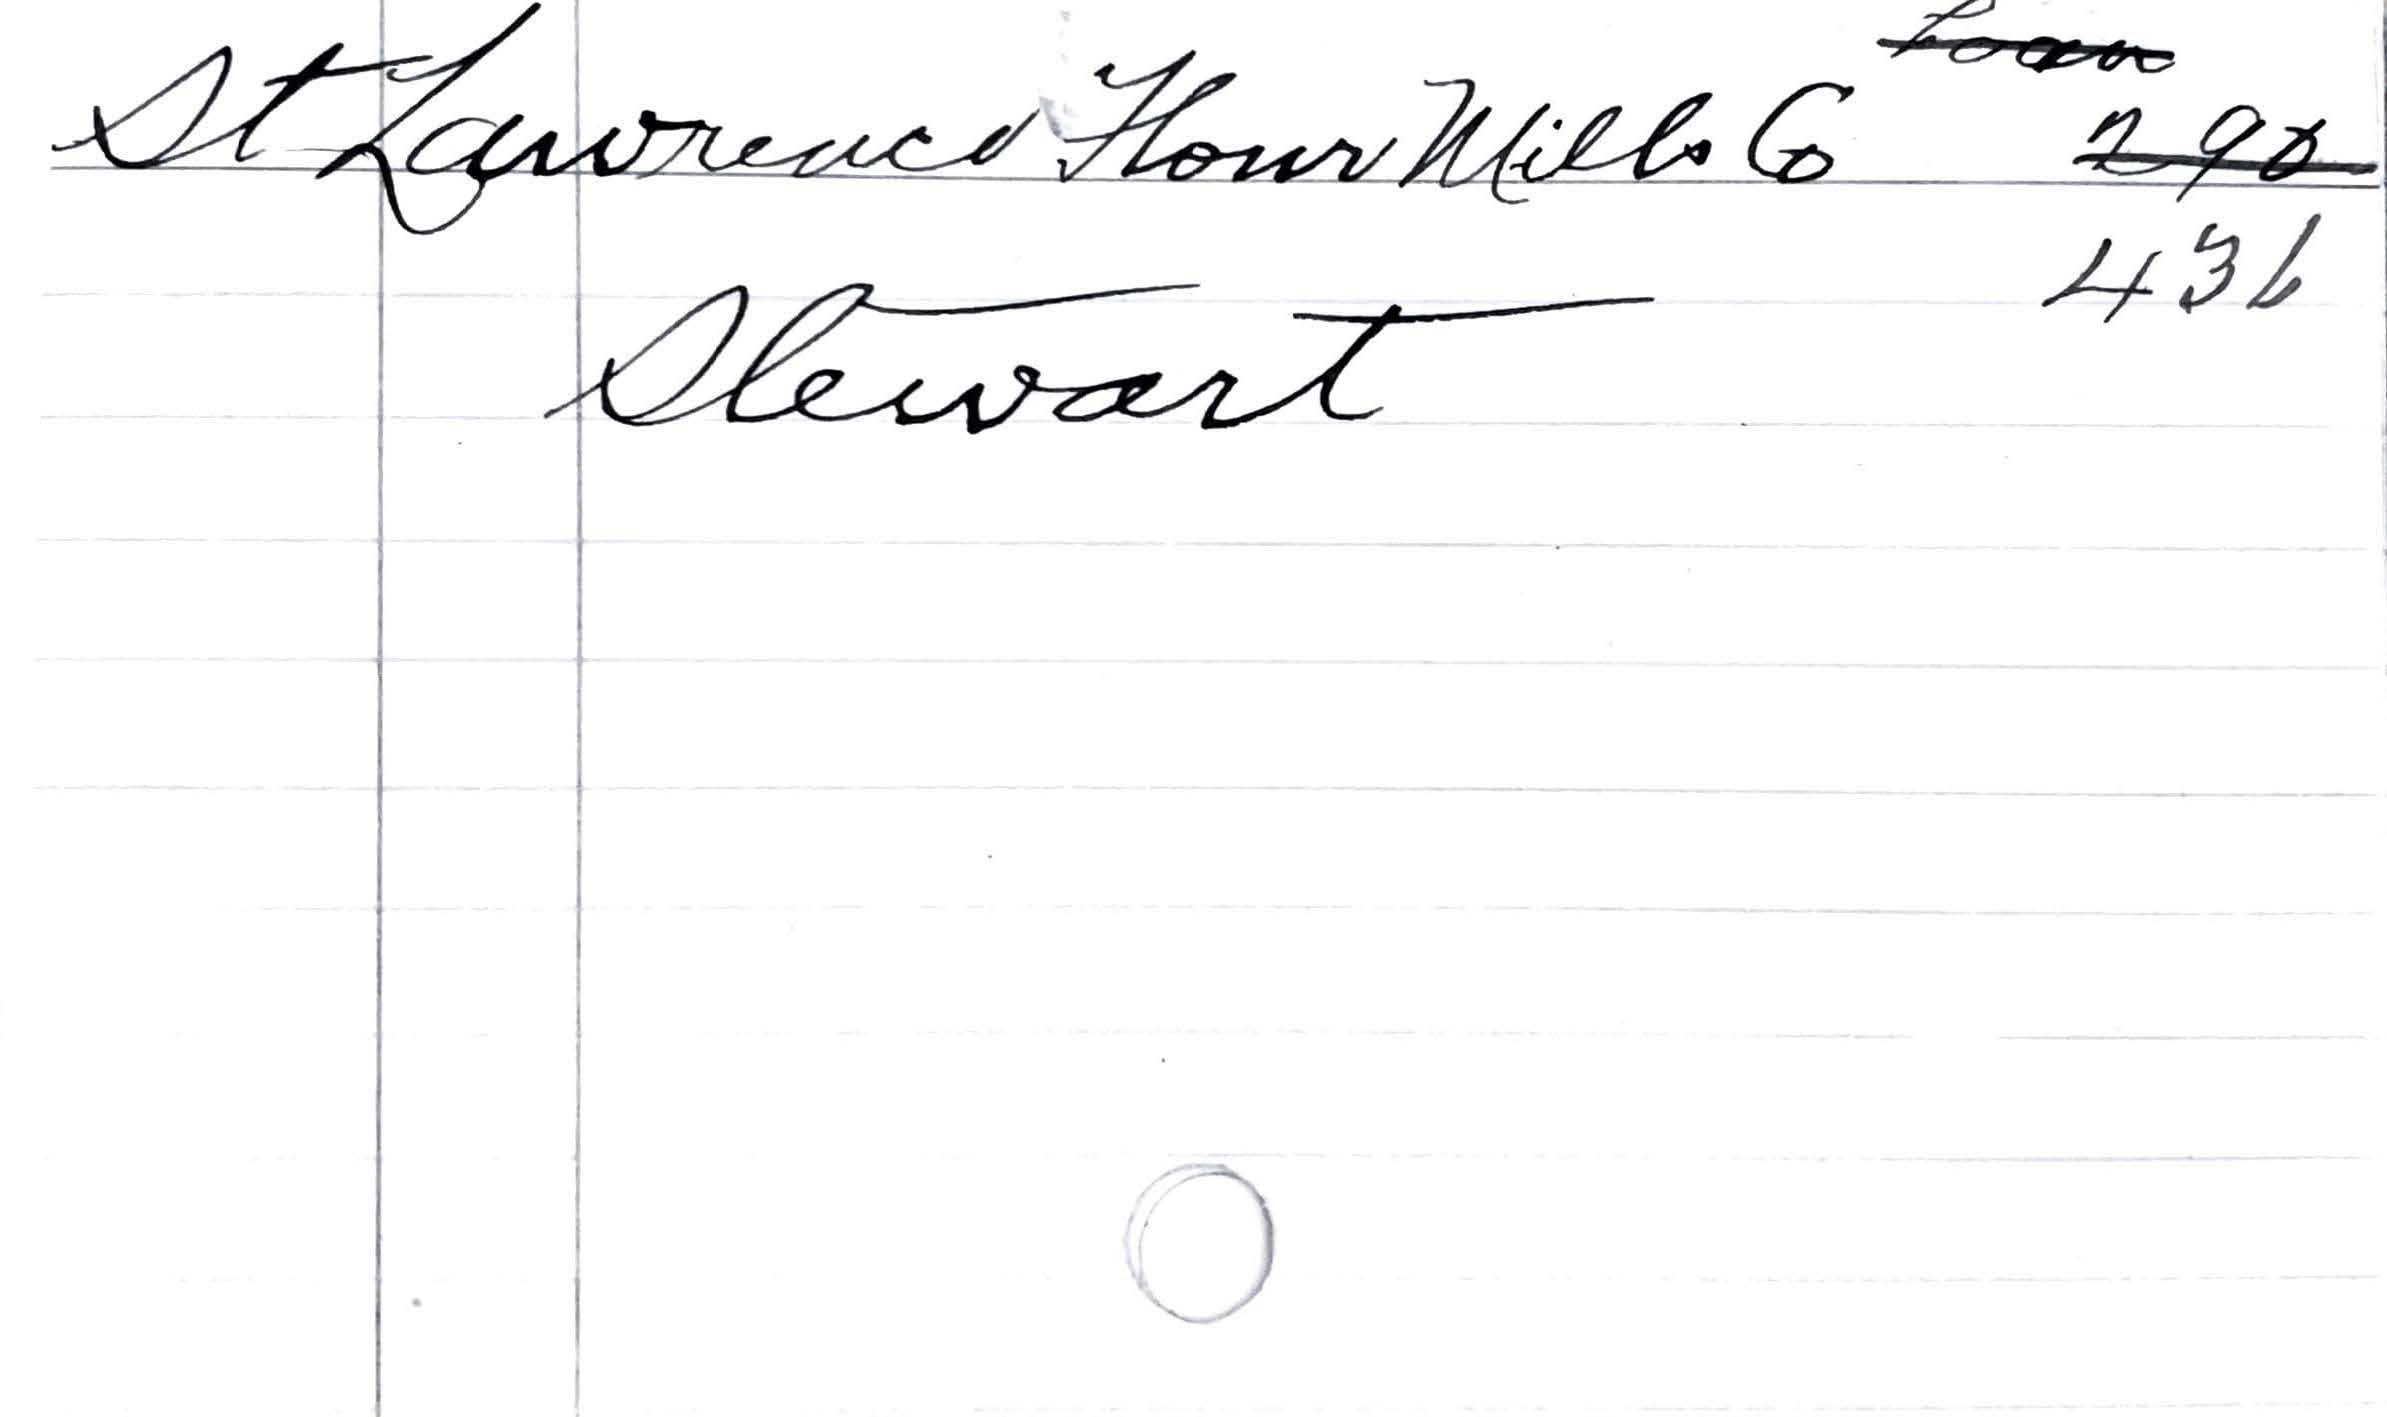 Loan
St Lawrence Flour Mills Co 290
436
Stewart